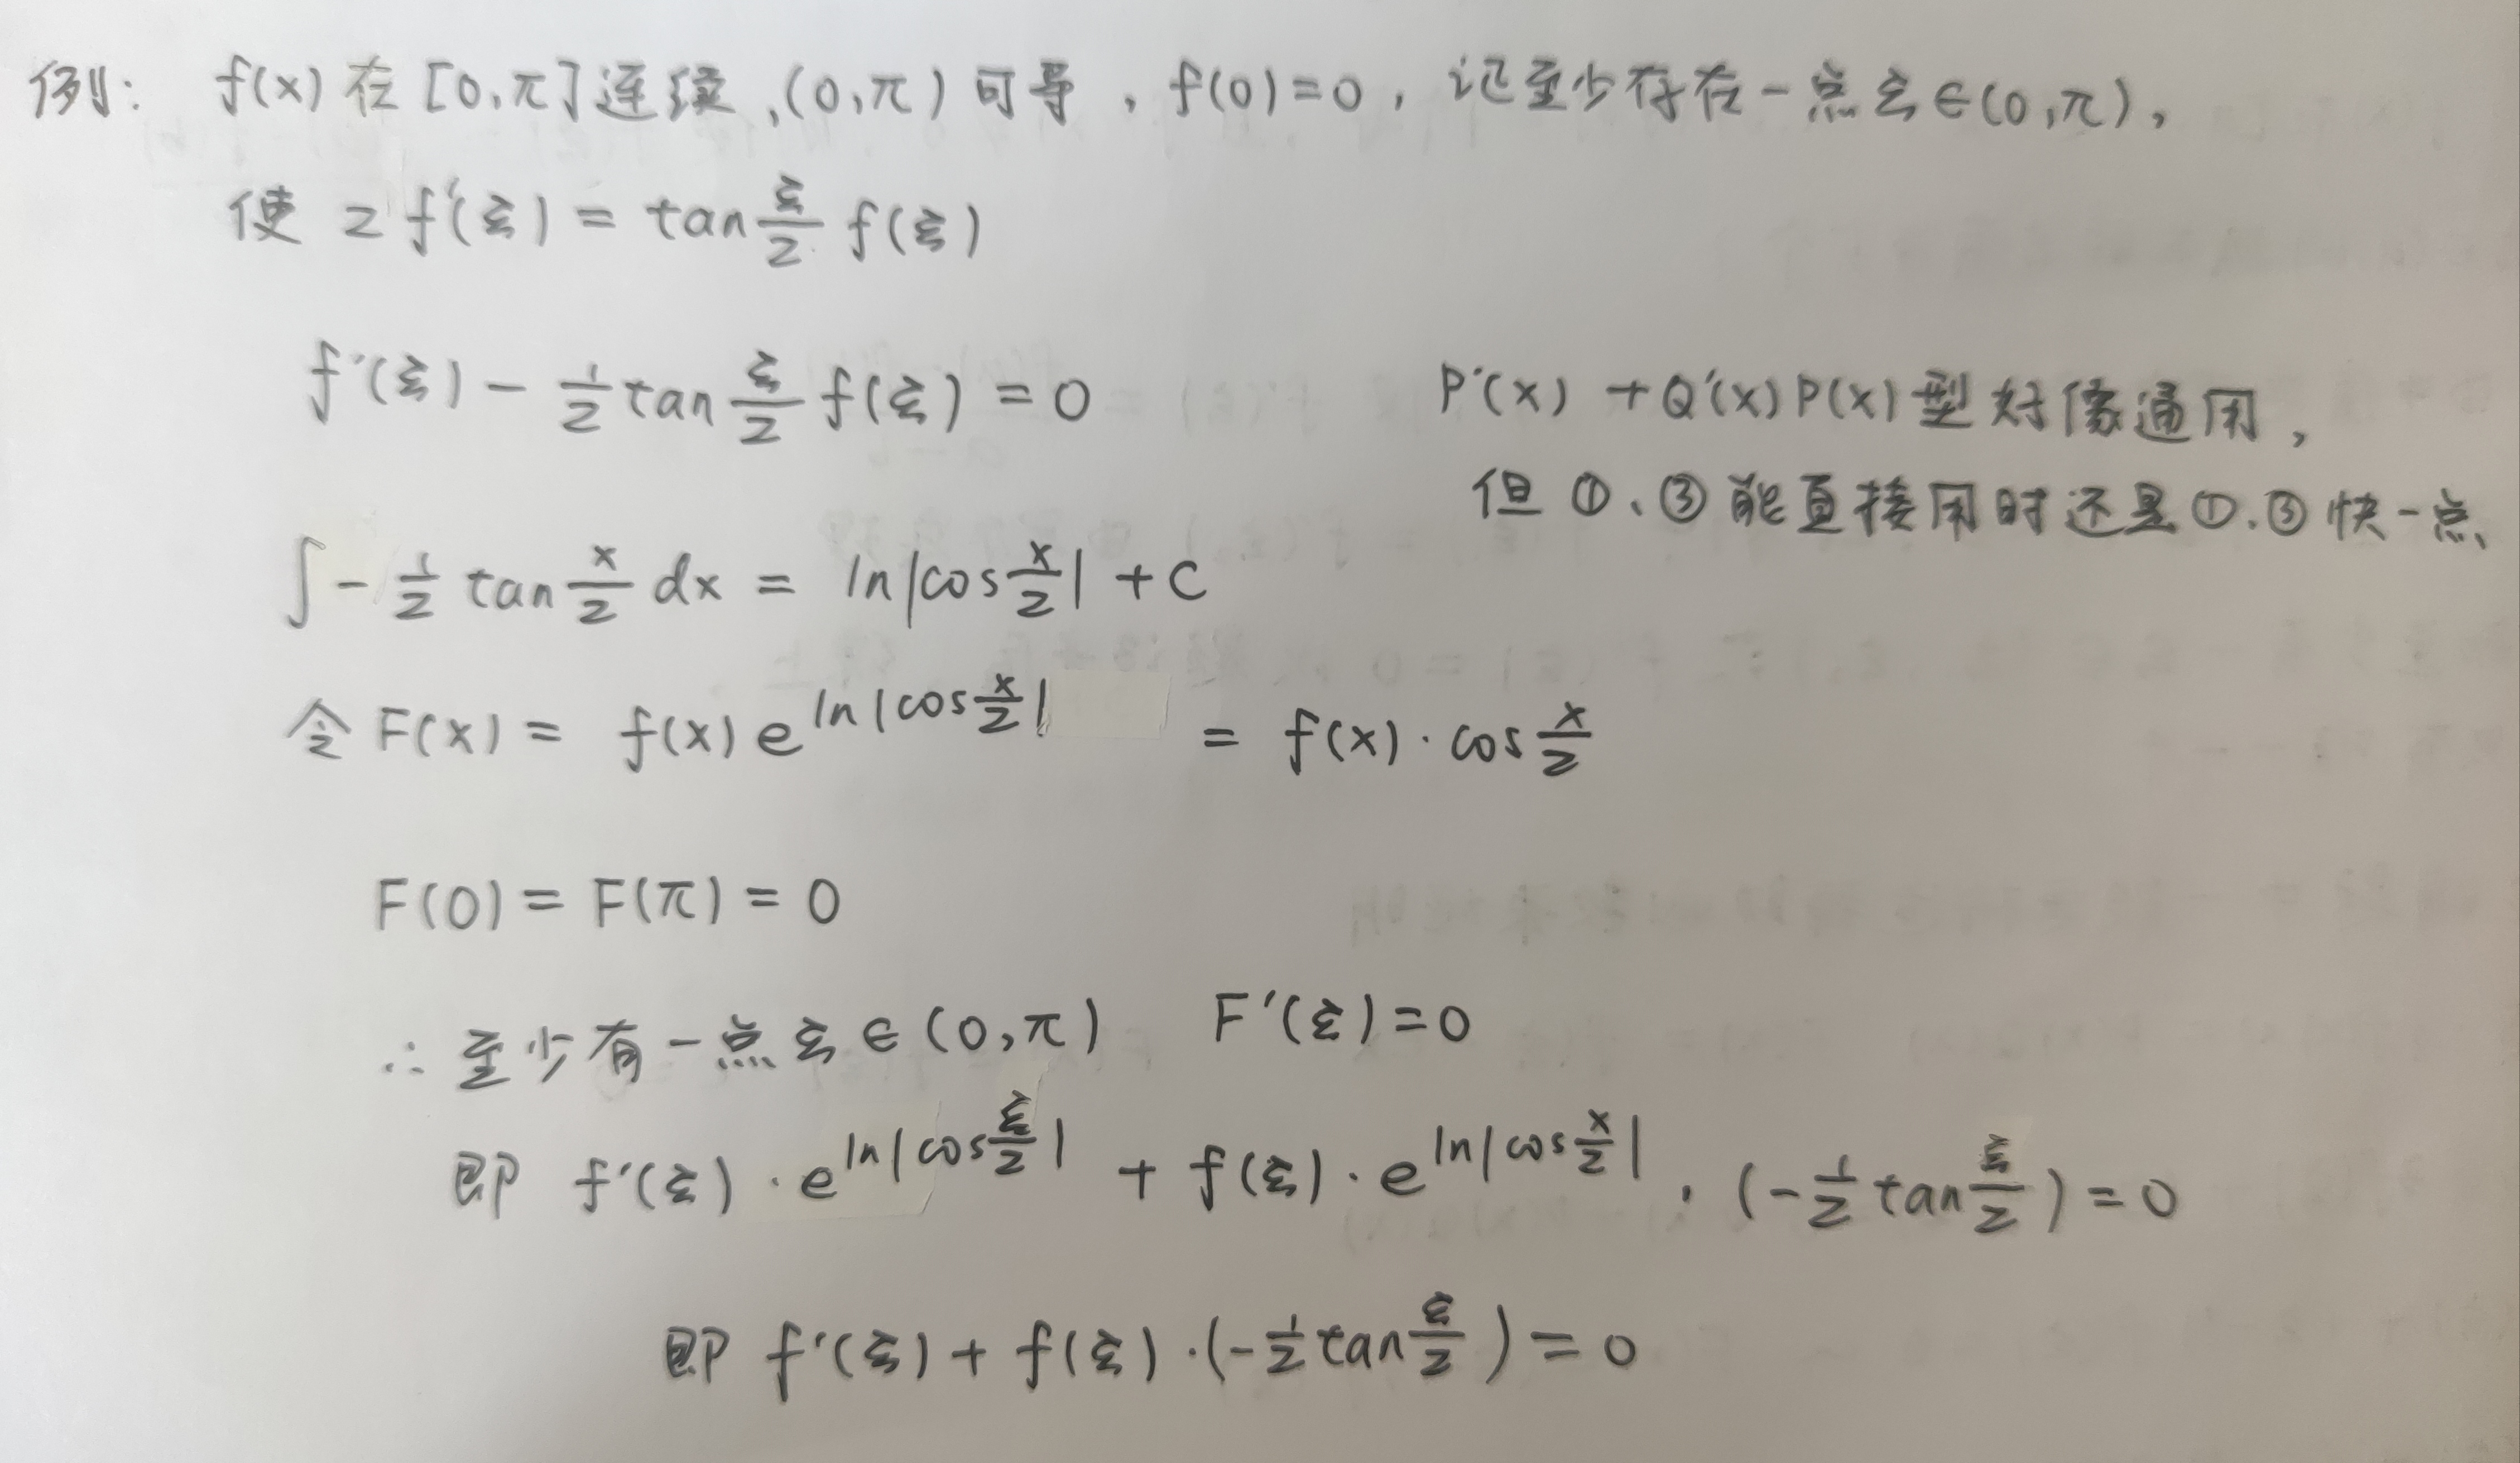 例: f(x) 在 [0,π] 连续, (0,π) 可导, f(0)=0, 记至少存在一点 ξ∈(0,π),
使 2f'(ξ) = tan ξ/2 f(ξ)
f'(ξ) - 1/2 tan ξ/2 f(ξ) = 0
P'(x) + Q'(x)P(x) 型好像通用,
但 ①、③ 能直接用时还是 ①、③ 快一点
∫ - 1/2 tan x/2 dx = ln|cos x/2| + C
令 F(x) = f(x) e^{ln|cos x/2|} = f(x)·cos x/2
F(0) = F(π) = 0
∴ 至少有一点 ξ∈(0,π) F'(ξ)=0
即 f'(ξ)·e^{ln|cos ξ/2|} + f(ξ)·e^{ln|cos x/2|}·(-1/2 tan ξ/2) = 0
即 f'(ξ) + f(ξ)·(-1/2 tan ξ/2) = 0